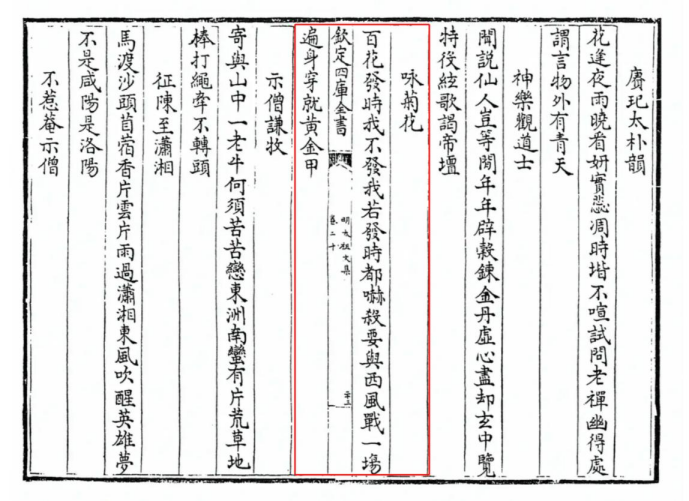 賡玘太朴韻
花逢夜雨曉看妍實惢凋時堦不喧試問老禪幽得處
謂言物外有青天
神樂觀道士
聞説仙人豈等閒年年辟穀鍊金丹虛心盡却玄中覽
特役絃歌謁帝壇
咏菊花
百花發時我不發我若發時都嚇殺要與西風戰一場
欽定四庫全書
明太祖文集
卷二十
遍身穿就黄金甲
示僧謙牧
寄與山中一老牛何須苦苦戀東洲南蠻有片荒草地
棒打繩牽不轉頭
征陳至瀟湘
馬渡沙頭苜蓿香片雲片雨過瀟湘東風吹醒英雄夢
不是咸陽是洛陽
不惹菴示僧